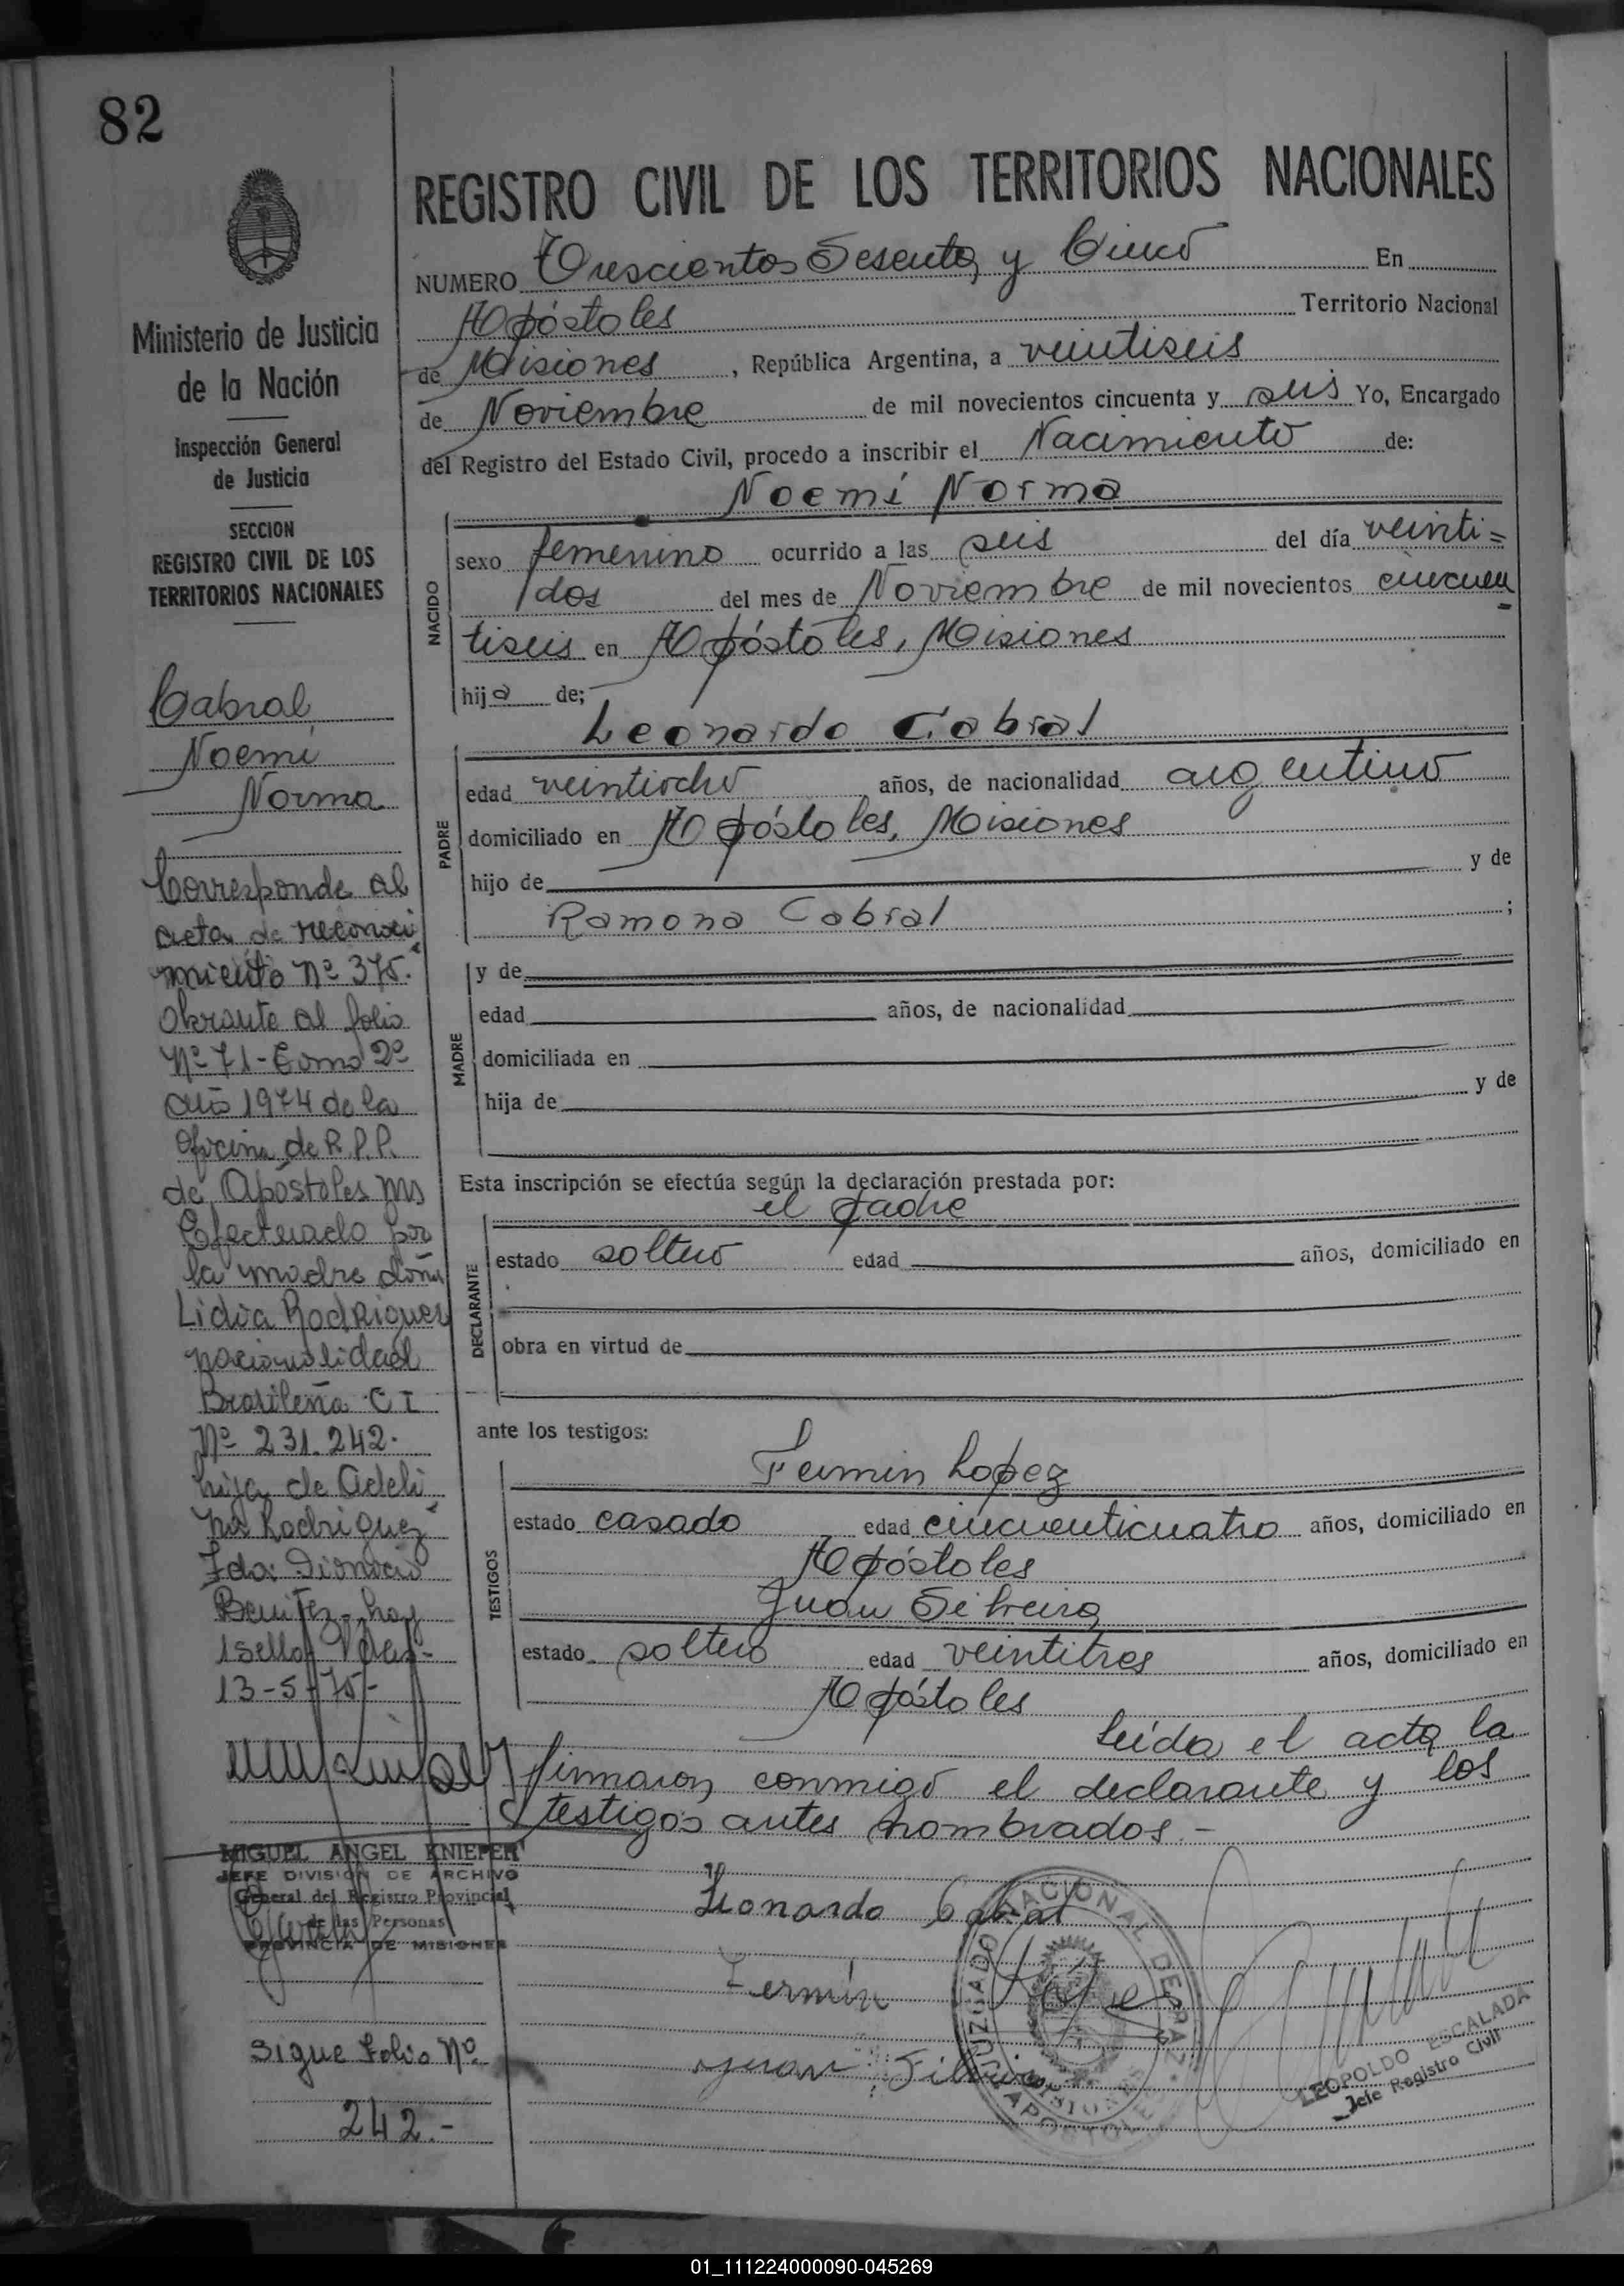 82
REGISTRO CIVIL DE LOS TERRITORIOS NACIONALES
NUMERO Trescientos Sesenta y Cinco En
Apóstoles Territorio Nacional
de Misiones, República Argentina, a veintiseis
de Noviembre de mil novecientos cincuenta y seis Yo, Encargado
del Registro del Estado Civil, procedo a inscribir el Nacimiento de:
Noemí Norma
NACIDO
sexo femenino ocurrido a las seis del día veinti=
dos del mes de Noviembre de mil novecientos cincuen
tiseis en Apóstoles, Misiones
hija de;
Leonardo Cabral
PADRE
edad veintiocho años, de nacionalidad argentino
domiciliado en Apóstoles, Misiones
hijo de y de
Ramona Cabral ;
MADRE
y de
edad años, de nacionalidad
domiciliada en
hija de y de
Esta inscripción se efectúa según la declaración prestada por:
el padre
DECLARANTE
estado soltero edad años, domiciliado en
obra en virtud de
ante los testigos:
TESTIGOS
Fermin Lopez
estado casado edad cincuenticuatro años, domiciliado en
Apóstoles
Juan Silveira
estado soltero edad veintitres años, domiciliado en
Apóstoles
Leída el acta la
firmaron conmigo el declarante y los
testigos antes nombrados.-
Leonardo Cabral
Fermín López
Juan Silveira
JUZGADO NACIONAL DE PAZ
APOSTOLES MISIONES
LEOPOLDO ESCALADA
Jefe Registro Civil
Ministerio de Justicia
de la Nación
Inspección General
de Justicia
SECCION
REGISTRO CIVIL DE LOS
TERRITORIOS NACIONALES
Cabral
Noemí
Norma
Corresponde al
acta de reconoci
miento Nº 375.
Obrante al folio
Nº 71-Tomo 2º
año 1974 de la
Oficina de R.P.P.
de Apóstoles Mns
Efectuado por
la madre doña
Lidia Rodriguez
nacionalidad
Brasileña C I
Nº 231.242.
hija de Adeli
na Rodriguez
Fdo: Dionicio
Benitez- hay
1 sello
13-5-75-
MIGUEL ANGEL KNIEPER
JEFE DIVISION DE ARCHIVO
General del Registro Provincial
de las Personas
PROVINCIA DE MISIONES
Sigue Folio Nº
242.-
01_111224000090-045269